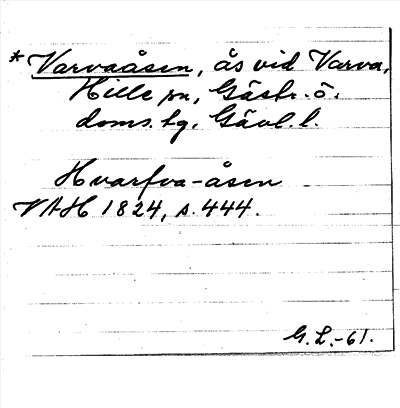 * Varvaåsen, ås vid Varva,
Hille sn, Gästr. ö.
doms. tg. Gävl. l.
Hvarfva-åsen
VAH 1824, s. 444.
G. L. -61.